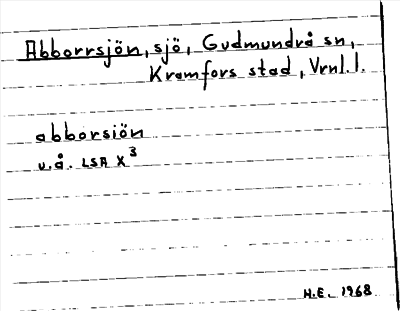 Abborrsjön, sjö, Gudmundrå sn,
Kramfors stad, Vrnl.l.
abborsiön
u.å. LSA X³
H.E. 1968